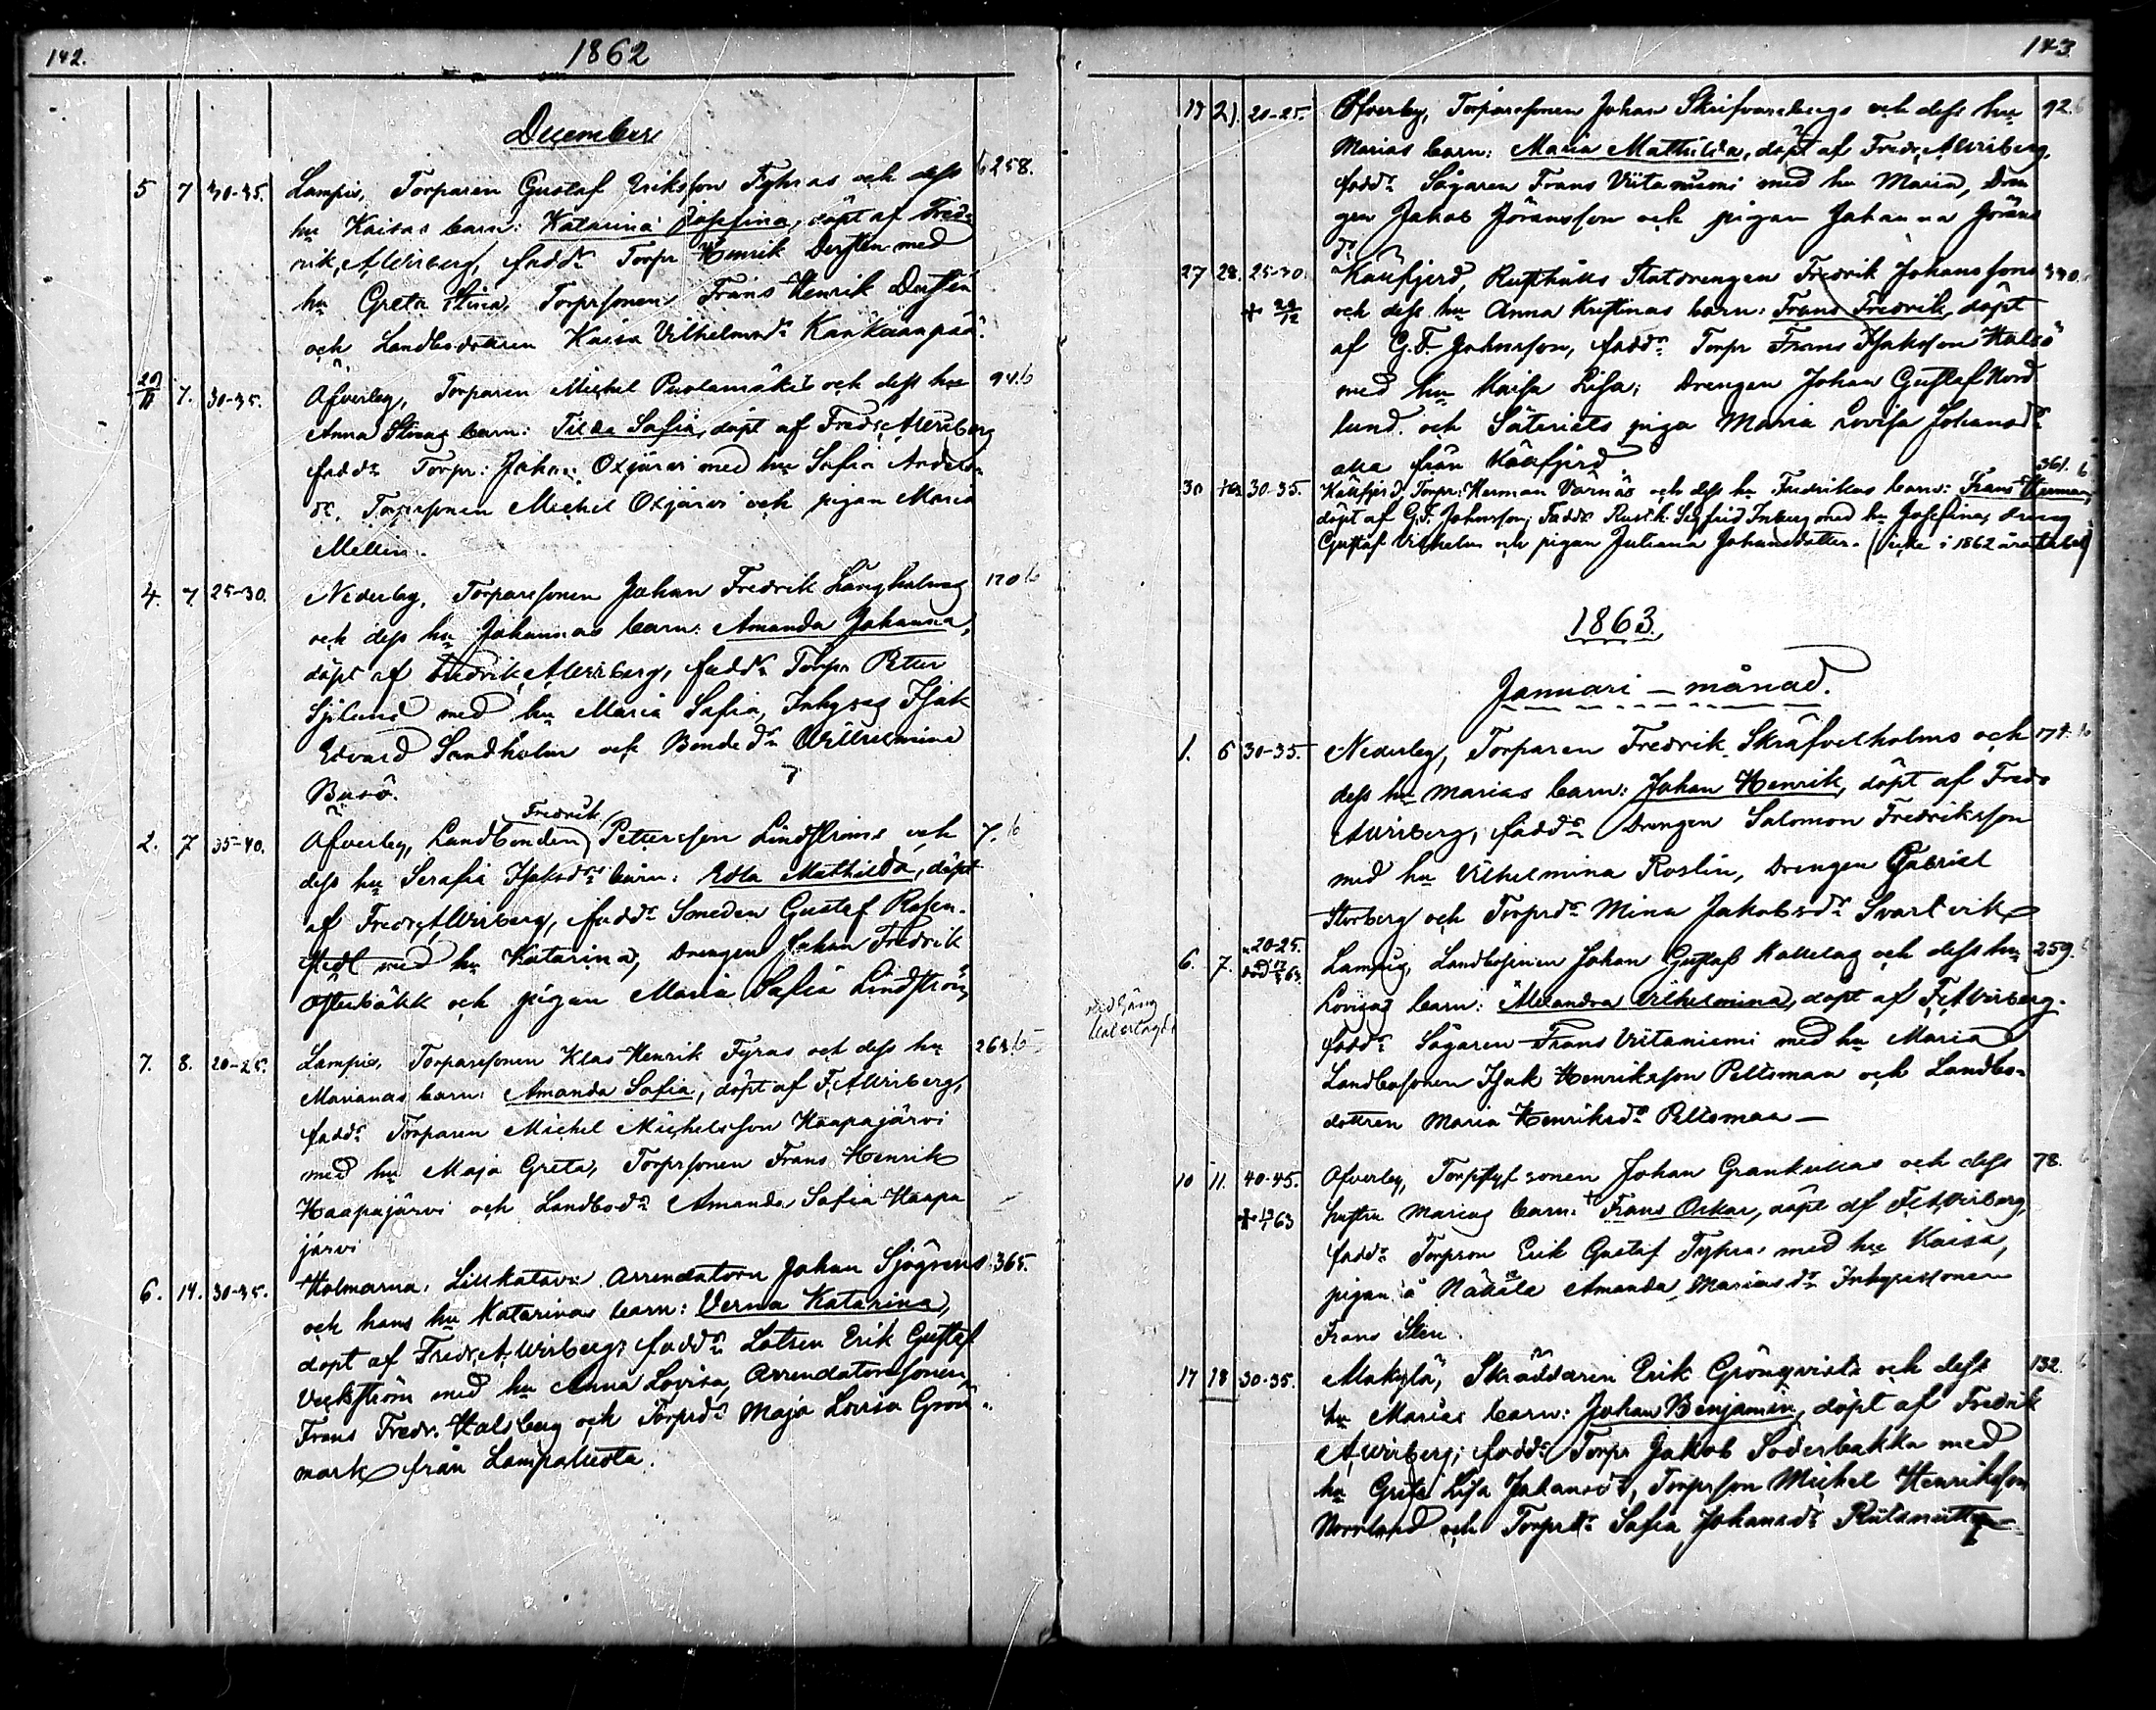 142.
1862
December
5 7 30-35. Lampis, Torparen Gustaf Eriksson Fyhras och dess 258.
hu Kaisas barn: Katarina Josefina, döpt af Fred-
rik A Wirberg, fadd: Torpr Henrik Dersten med
hu Greta Stina, Torprsonen Frans Henrik Dersten
och Landbodottren Kaisa Vilhelmsd: Kankaanpää.
29/11 7. 30-35. Öfverby, Torparen Michel Puolamäkis och dess hu 94.
Anna Stinas barn: Tilda Sofia, döpt af Fredr. A Wirberg
fadd: Torpr: Johan Oxjärvi med hu Sofia Anders-
dr, Torprsonen Michel Oxjärvi och pigan Maria
Mellin.
4. 7 25-30. Nederby, Torparesonen Johan Fredrik Långholms 170
och dess hu Johannas barn: Amanda Johanna,
döpt af Fredrik A Wirberg, fadd: Torpr Petter
Sjölund med hu Maria Sofia, Inhyses Isak
Edvard Sandholm och Bonde dr Wilhelmina
Busö.
Fredrik
2. 7 35-40. Öfverby, Landbonden Pettersson Lindströms och 7.
dess hu Serafia Isaksdrs barn: Edla Mathilda, döpt
af Fredr. A Wirberg, fadd: Smeden Gustaf Rosen-
stedt med hu Katarina, drengen Johan Fredrik
Österbäkk och pigan Maria Sofia Lindström
7. 8. 20-25. Lampis, Torparesonen Klas Henrik Fyras och dess hu 263.
Marianas barn: Amanda Sofia, döpt af F. A Wirberg,
fadd: Torparen Michel Michelsson Haapajärvi
med hu Maja Greta, Torprsonen Frans Henrik
Haapajärvi och Landbod: Amanda Sofia Haapa
järvi
6. 14. 30-35. Holmarna, Lillkatava Arrendatorn Johan Sjögrens 365.
och hans hu Katarinas barn: Verna Katarina,
döpt af Fredr. A Wirberg, fadd: Lotsen Erik Gustaf
Veckström med hu Anna Lovisa, Arrendatorssonen
Frans Fredr. Halsberg och Torprd: Maja Lovisa Grön-
mark från Lampaluota.
143.
19 21. 20-25. Öfverby, Torparesonen Johan Skrifvarsbergs och dess hu 92.
Marias barn: Maria Mathilda, döpt af Fredr. A Wirberg.
fadd: Sågaren Frans Viitaniemi med hu Maria, Dren
gen Jakob Jöransson och pigan Johanna Jörans
dr
27 28. 25-30. Källfjerd, Rusthålls Statdrengen Fredrik Johanssons 340.
och dess hu Anna Kristinas barn: Frans Fredrik, döpt
af G. F. Johnsson, fadd: Torpr Frans Isaksson Halsö
med hu Kaisa Lisa, Drengen Johan Gustaf Nord
lund och Säteriets piga Maria Lovisa Johansdr
alla från Källfjerd
361.
30 30-35. Källfjerd, Torpr: Herman Varnäs och dess hu Fredrikas barn: Frans Herman,
döpt af G. F. Johnsson; Fadd: Rusth. Sigfrid Inberg med hu Josefina, dreng
Gustaf Vilhelm och pigan Juliana Johansdotter. (icke i 1862 års tabell)
1863.
Januari - månad.
1. 6 30-35. Nederby, Torparen Fredrik Skräfvelholms och 174.
dess hu Marias barn: Johan Henrik, döpt af Fredr
A Wirberg, fadd: Drengen Salomon Fredriksson
med hu Vilhelmina Roslin, drengen Gabriel
Storberg och Torprd: Mina Jakobsdr Svartvik
6. 7. 20-25. Lampis, Landbosonen Johan Gustaf Kallelas och dess hu 259.
Lovisas barn: Alexandra Vilhelmina, döpt af F. A Wirberg.
fadd: Sågaren Frans Viitaniemi med hu Maria
Landbosonen Isak Henriksson Peltomaa och Landbo-
dottren Maria Henriksdr Peltomaa —
10 11. 40-45. Öfverby, Torpstyfsonen Johan Grankullas och dess 78.
+ 13/1 63 hustru Marias barn: Frans Oskar, döpt af F. A Wirberg,
fadd: Torprson Erik Gustaf Fyhras med hu Kaisa,
pigan å Näkälä Amanda Mariasdr Inhysessonen
Frans Sten.
17 18 30-35. Makylä, Skräddaren Erik Grönqvists och dess 132.
hu Marias barn: Johan Benjamin, döpt af Fredrik
A Wirberg; fadd: Torpr Jakob Söderbakka med
hu Greta Lisa Johansdr, Torprson Michel Henriksson
Norrland och Torprdr Sofia Johansdr